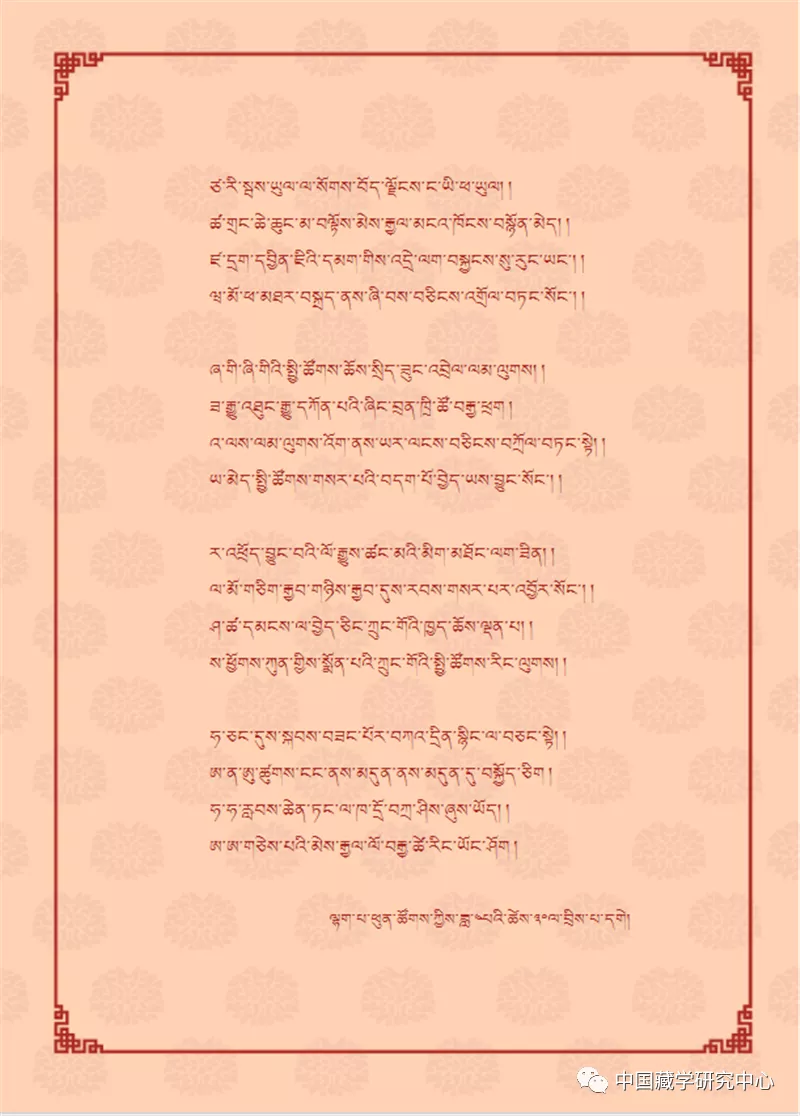 ཙ་རི་སྦས་ཡུལ་ལ་སོགས་བོད་ལྗོངས་ང་ཡི་ཕ་ཡུལ། །
ཚ་གྲང་ཆེ་ཆུང་མ་བལྟོས་མེས་རྒྱལ་མངའ་ཁོངས་བསྙོན་མེད། །
ཛ་དྲག་དབྱིན་ཇིའི་དམག་གིས་འདྲེ་ལག་བསྐྱངས་སུ་རུང་ཡང་། །
ཝ་མོ་ཕ་མཐར་བསྐྲད་ནས་ཞི་བས་བཅིངས་འགྲོལ་བཏང་སོང་། །
ཞ་གི་ཞི་གིའི་སྤྱི་ཚོགས་ཆོས་སྲིད་ཟུང་འབྲེལ་ལམ་ལུགས། །
ཟ་རྒྱུ་འཐུང་རྒྱུ་དཀོན་པའི་ཞིང་བྲན་ཁྲི་ཚོ་བརྒྱ་ཕྲག །
འ་ལས་ལམ་ལུགས་འོག་ནས་ཡར་ལངས་བཅིངས་བཀྲོལ་བཏང་སྟེ། །
ཡ་མེད་སྤྱི་ཚོགས་གསར་པའི་བདག་པོ་བྱེད་ཡས་བྱུང་སོང་། །
ར་འཕྲོད་བྱུང་བའི་ལོ་རྒྱུས་ཚང་མའི་མིག་མཐོང་ལག་ཟིན། །
ལ་མོ་གཅིག་རྒྱབ་གཉིས་རྒྱབ་དུས་རབས་གསར་པར་འབྱོར་སོང་། །
ཤ་ཚ་དམངས་ལ་བྱེད་ཅིང་ཀྲུང་གོའི་ཁྱད་ཆོས་ལྡན་པ། །
ས་ཕྱོགས་ཀུན་གྱིས་སྨོན་པའི་ཀྲུང་གོའི་སྤྱི་ཚོགས་རིང་ལུགས། །
ཧ་ཅང་དུས་སྐབས་བཟང་པོར་བཀའ་དྲིན་སྙིང་ལ་བཅང་སྟེ། །
ཨ་ན་ཨུ་ཚུགས་ངང་ནས་མདུན་ནས་མདུན་དུ་བསྐྱོད་ཅིག །
ཧ་ཧ་རླབས་ཆེན་ཏང་ལ་ཁ་དྲོ་བཀྲ་ཤིས་ཞུས་ཡོད། །
ཨ་ཨ་གཅེས་པའི་མེས་རྒྱལ་ལོ་བརྒྱ་ཚེ་རིང་ཡོང་ཤོག །
ལྷག་པ་ཕུན་ཚོགས་ཀྱིས་ཟླ་༦པའི་ཚེས་༣༠ལ་བྲིས་པ་དགེ།
中国藏学研究中心